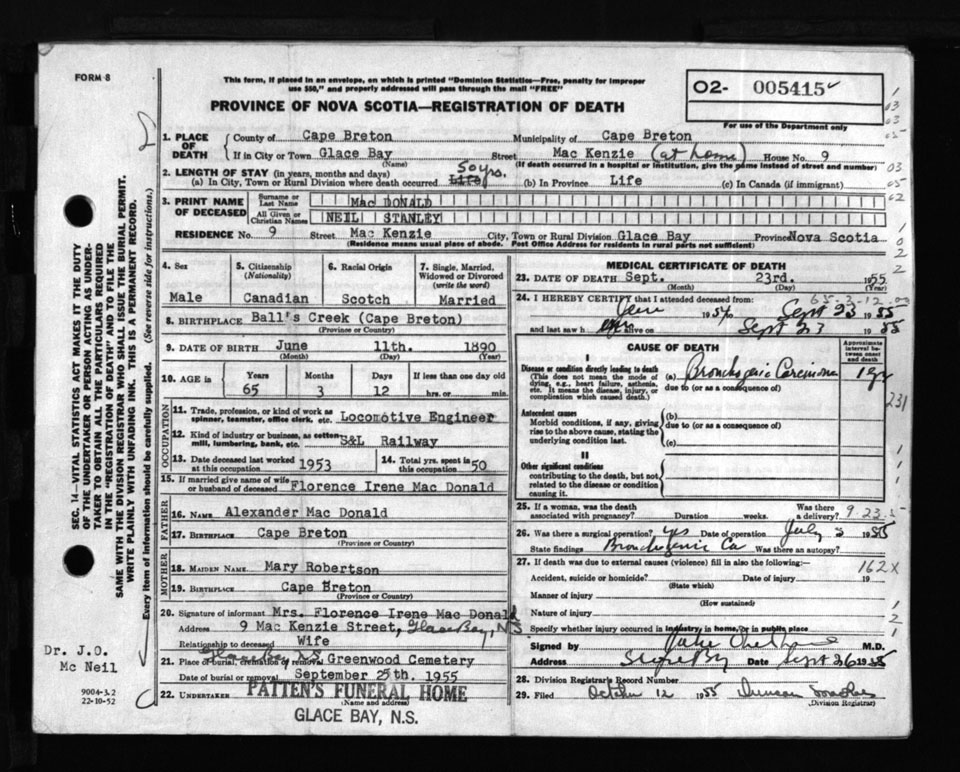 FORM 8
This form, if placed in an envelope, on which is printed "Dominion Statistics—Free, penalty for improper
use $50," and properly addressed will pass through the mail "FREE"
PROVINCE OF NOVA SCOTIA—REGISTRATION OF DEATH
O2- 005415
For use of the Department only
1. PLACE OF DEATH { County of Cape Breton Municipality of Cape Breton
If in City or Town Glace Bay Street Mac Kenzie (at home) House No. 9
(Name) (If death occurred in a hospital or institution, give the name instead of street and number)
2. LENGTH OF STAY (in years, months and days) 50 yrs.
(a) In City, Town or Rural Division where death occurred Life (b) In Province Life (c) In Canada (if immigrant)
3. PRINT NAME OF DECEASED { Surname or Last Name Mac DONALD
All Given or Christian Names NEIL STANLEY
RESIDENCE No. 9 Street Mac Kenzie City, Town or Rural Division Glace Bay Province Nova Scotia
(Residence means usual place of abode. Post Office Address for residents in rural parts not sufficient)
4. Sex
Male
5. Citizenship (Nationality)
Canadian
6. Racial Origin
Scotch
7. Single, Married, Widowed or Divorced (write the word)
Married
8. BIRTHPLACE Ball's Creek (Cape Breton)
(Province or Country)
9. DATE OF BIRTH June 11th. 1890
(Month) (Day) (Year)
10. AGE in Years Months Days If less than one day old
65 3 12 hrs. or min.
OCCUPATION
11. Trade, profession, or kind of work as spinner, teamster, office clerk, etc. Locomotive Engineer
12. Kind of industry or business, as cotton mill, lumbering, bank, etc. S&L Railway
13. Date deceased last worked at this occupation 1953 14. Total yrs. spent in this occupation 50
15. If married give name of wife or husband of deceased Florence Irene Mac Donald
FATHER
16. NAME Alexander Mac Donald
17. BIRTHPLACE Cape Breton
(Province or Country)
MOTHER
18. MAIDEN NAME Mary Robertson
19. BIRTHPLACE Cape Breton
(Province or Country)
20. Signature of informant Mrs. Florence Irene Mac Donald
Address 9 Mac Kenzie Street, Glace Bay, N.S
Relationship to deceased Wife
21. Place of burial, cremation or removal Glace Bay N.S Greenwood Cemetery
Date of burial or removal September 25th. 1955
22. UNDERTAKER PATTEN'S FUNERAL HOME
(Name and address)
GLACE BAY, N.S.
MEDICAL CERTIFICATE OF DEATH
23. DATE OF DEATH Sept. 23rd. 1955
(Month) (Day) (Year)
65-3-12
24. I HEREBY CERTIFY that I attended deceased from:
1954 Sept 23 1955
and last saw h alive on Sept 23 1955
CAUSE OF DEATH
Approximate interval between onset and death
I
Disease or condition directly leading to death
(This does not mean the mode of dying, e.g., heart failure, asthenia, etc. It means the disease, injury, or complication which caused death.)
(a) Bronchogenic Carcinoma 1 yr
due to (or as a consequence of)
231
Antecedent causes
Morbid conditions, if any, giving rise to the above cause, stating the underlying condition last.
(b)
due to (or as a consequence of)
(c)
II
Other significant conditions
contributing to the death, but not related to the disease or condition causing it.
25. If a woman, was the death associated with pregnancy? Duration weeks. Was there a delivery?
9-23-5
26. Was there a surgical operation? yes Date of operation July 1955
State findings Bronchogenic Ca Was there an autopsy?
27. If death was due to external causes (violence) fill in also the following:- 162X
Accident, suicide or homicide? Date of injury 19
(State which)
Manner of injury
(How sustained)
Nature of injury
Specify whether injury occurred in industry, in home, or in public place
Signed by M.D.
Address Date Sept 26 1955
28. Division Registrar's Record Number
29. Filed October 12 1955 Duncan
(Division Registrar)
SEC. 14—VITAL STATISTICS ACT MAKES IT THE DUTY
OF THE UNDERTAKER OR PERSON ACTING AS UNDER-
TAKER TO OBTAIN ALL THE PARTICULARS REQUIRED
IN THE "REGISTRATION OF DEATH" AND TO FILE THE
SAME WITH THE DIVISION REGISTRAR WHO SHALL ISSUE THE BURIAL PERMIT.
WRITE PLAINLY WITH UNFADING INK. THIS IS A PERMANENT RECORD.
Every item of information should be carefully supplied. (See reverse side for instructions.)
Dr. J.O.
Mc Neil
9004-3.2
22-10-52